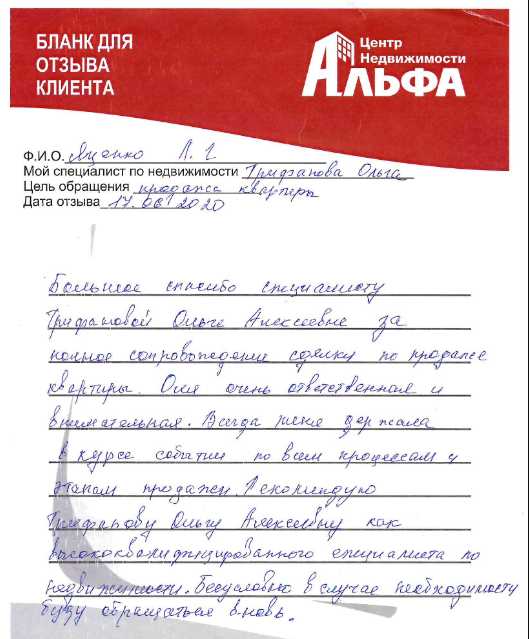 БЛАНК ДЛЯ
ОТЗЫВА
КЛИЕНТА
Центр
Недвижимости
АЛЬФА
Ф.И.О. Яценко Л. Г
Мой специалист по недвижимости Трифанова Ольга
Цель обращения продажа квартиры
Дата отзыва 17.06 2020
Большое спасибо специалисту
Трифановой Ольге Алексеевне за
полное сопровождение сделки по продаже
квартиры. Она очень ответственная и
внимательная. Всегда меня держала
в курсе событий по всем процессам и
этапам продажи. Рекомендую
Трифанову Ольгу Алексеевну как
высококвалифицированного специалиста по
недвижимости. Безусловно в случае необходимости
буду обращаться вновь.